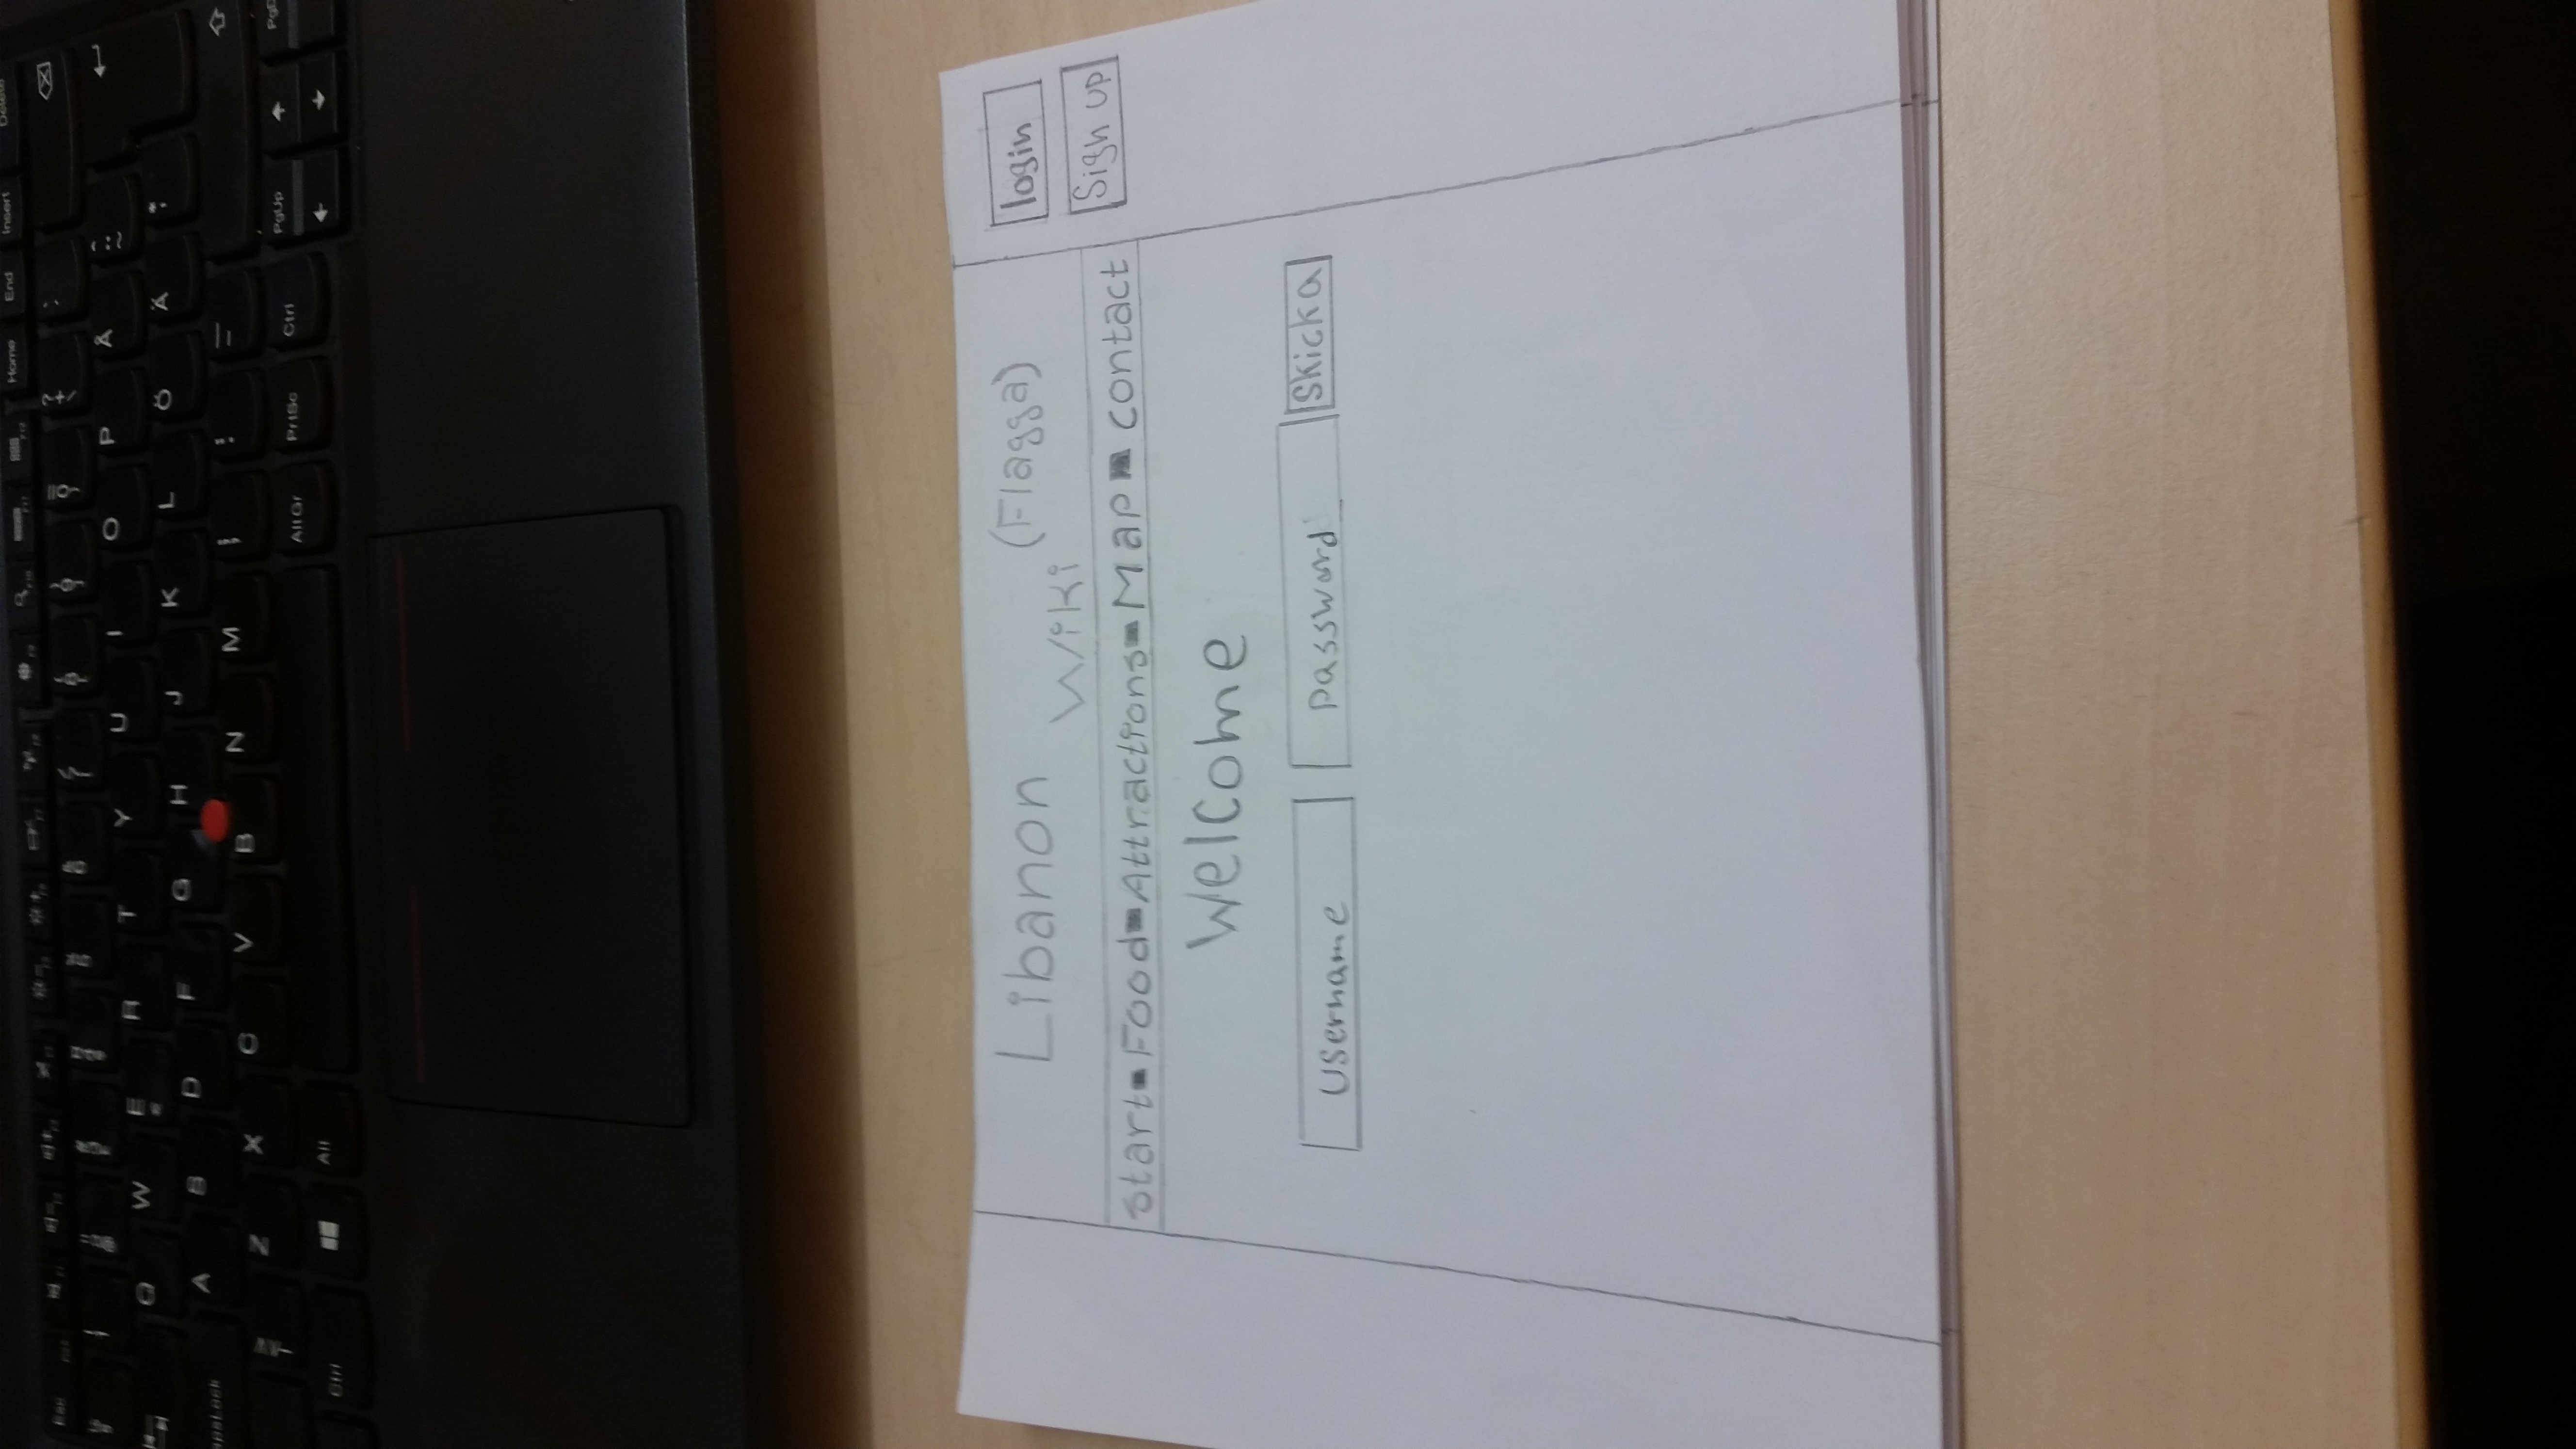 Home End Insert Delete
Q W E R T Y U I O P Å
A S D F G H J K L Ö Ä
Z X C V B N M
Ctrl Alt Alt Gr PrtSc Ctrl PgUp
Libanon (Flagga)
Wiki
login
Sign up
start Food Attractions Map contact
Welcome
Username Password Skicka